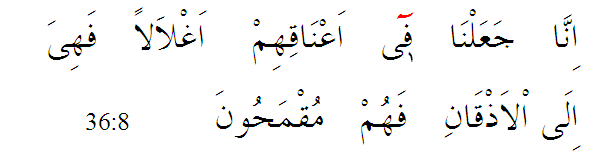 اِنَّا جَعَلْنَا فٖٓى اَعْنَاقِهِمْ اَغْلَالاً فَهِىَ
اِلَى الْاَذْقَانِ فَهُمْ مُقْمَحُونَ 36:8